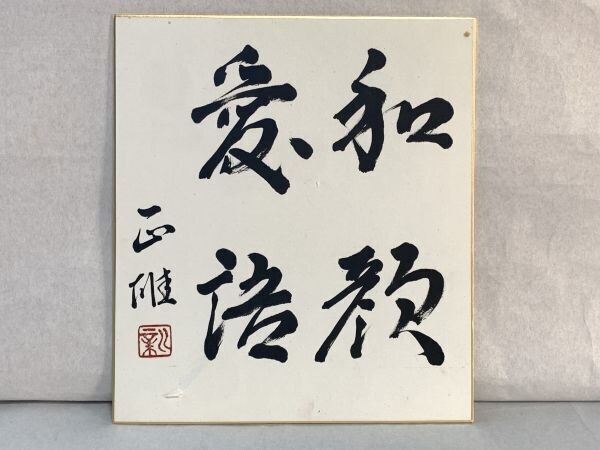 和顔
愛語
正雄